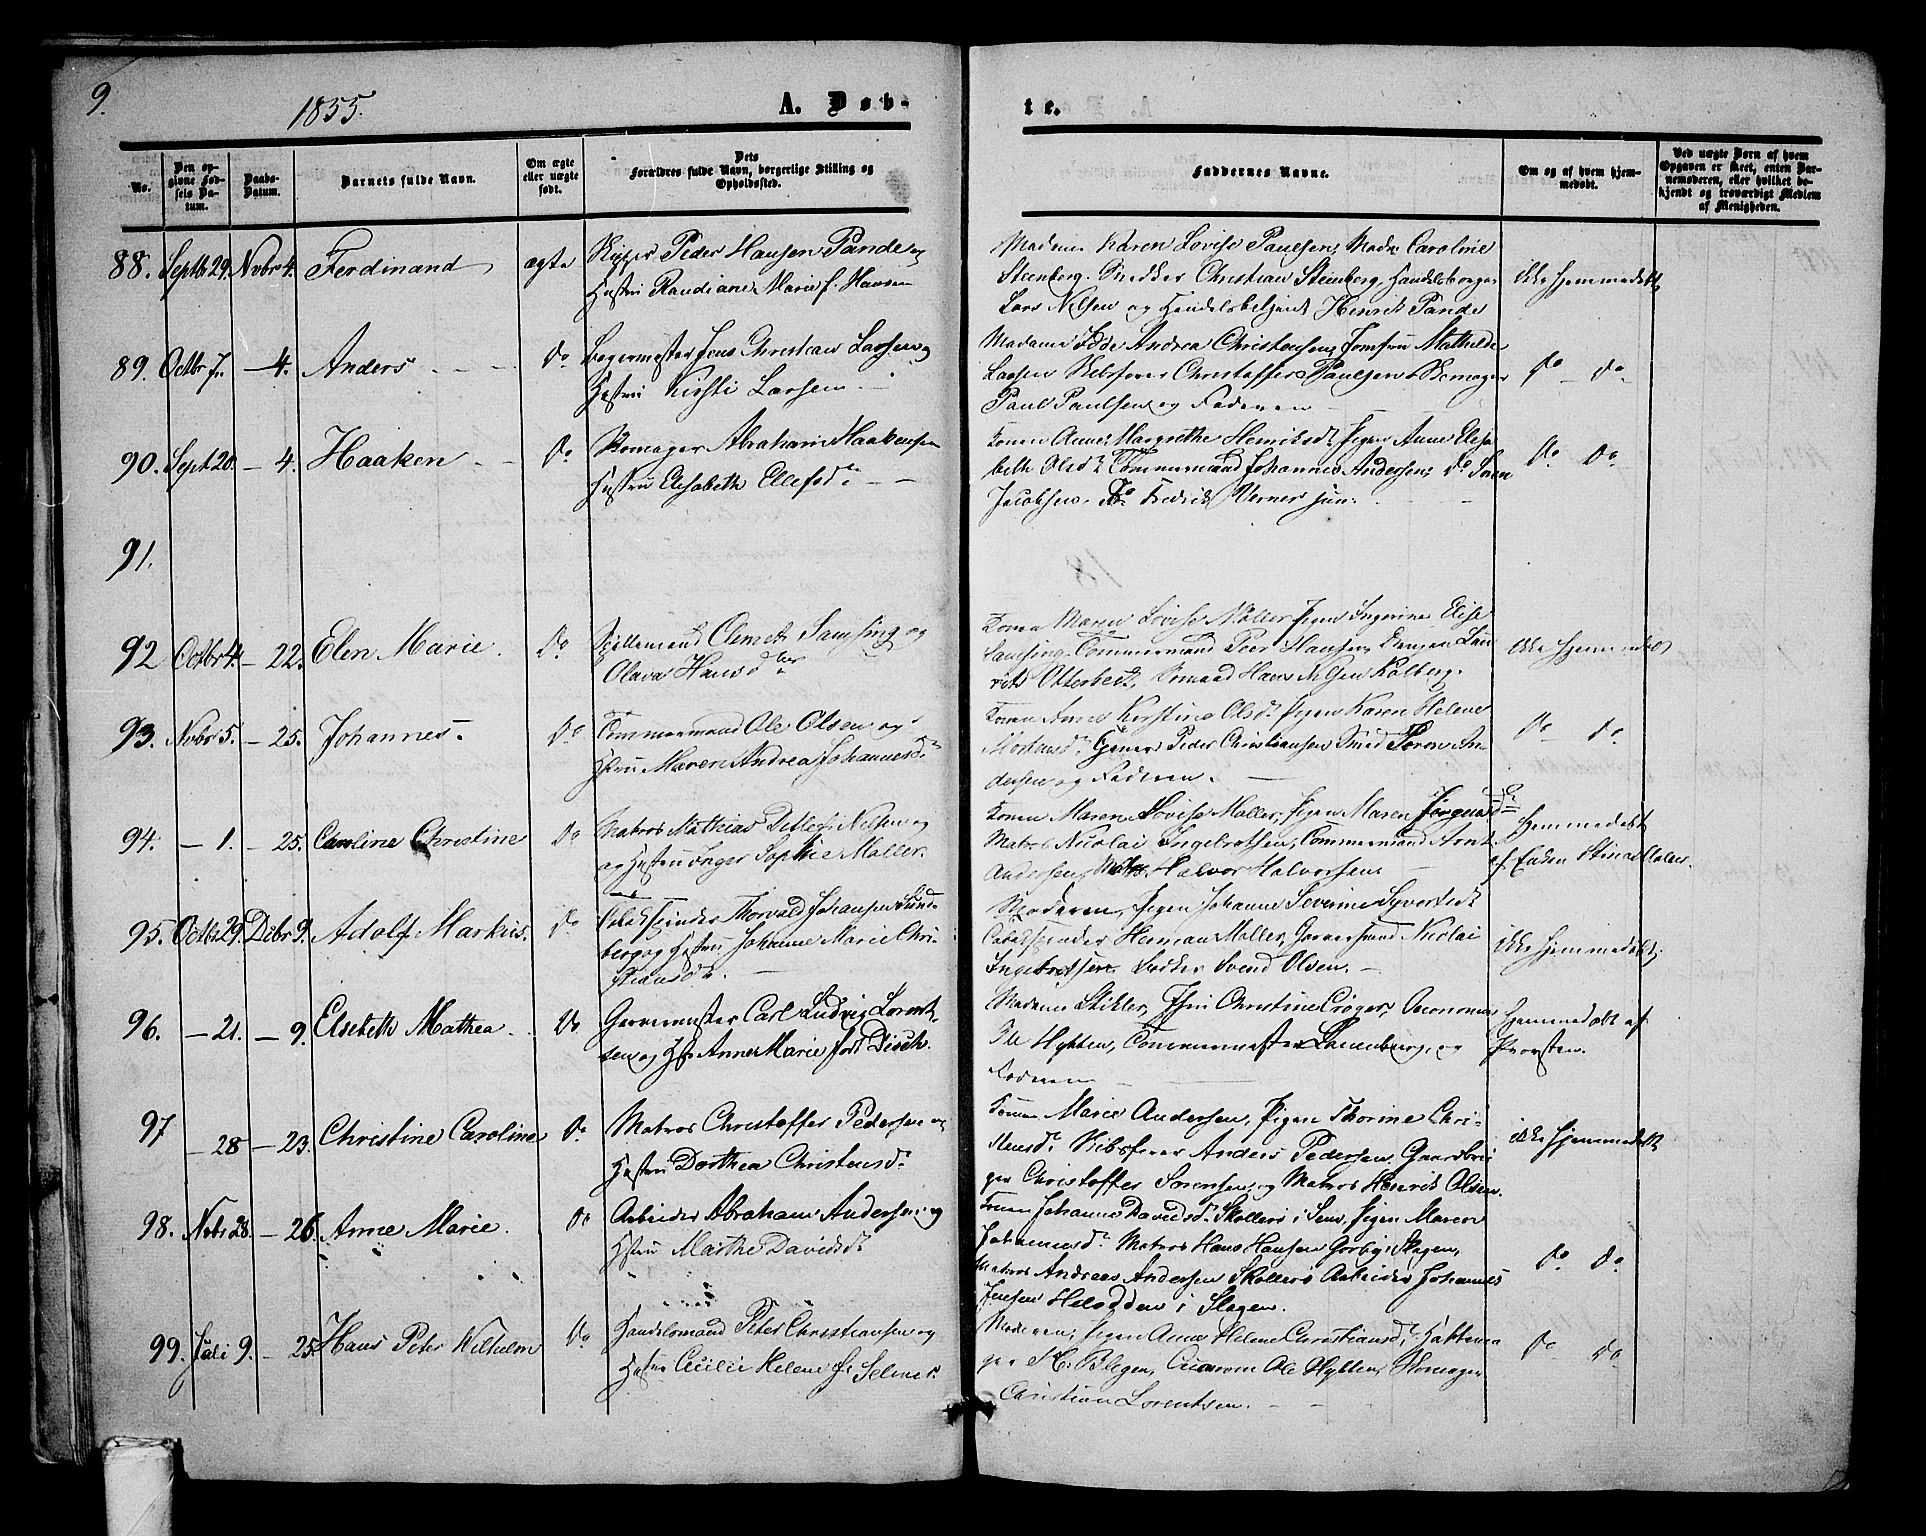 9.
1855.
A. Døb-
te.
No.
Den op-
givne Fød-
sels Da-
tum.
Daabs-
Datum.
Barnets fulde Navn.
Om ægte
eller uægte
født.
Dets
Forældres fulde Navn, borgerlige Stilling og
Opholdssted.
Faddernes Navne.
Om og af hvem hjem-
medøbt.
Ved uægte Børn af hvem
Opgaven er skeet, enten Bar-
nemoderen, eller hvilket be-
kjendt og troværdigt Medlem
af Menigheden.
88. Septbr 29. Novbr 4. Ferdinand ægte
Peder Hansen Pande og
Hustru Randiane Marie f. Hansen
Madame Karen Lovise Paulsen, Mad. Caroline
Steenberg. Snedker Christian Steenberg, Handelsborger
Lars Nilsen og Handelsbetjent Henrik Pande
ikke hjemmedøbt
89. Octbr 7. – 4. Anders Do
Bøgermester Jens Christian Larsen og
Hustru Kirsti Larsen
Madame Andrea Christensen, Jomfru Mathilde
Larsen Skibsfører Christoffer Paulsen, Skomager
Paul Paulsen og Faderen
Do – Do
90. Sept 20. – 4. Haaken Do
Skomager Abraham Haakensen
Hustru Elisabeth Ellefsd.
Konen Anne Margrethe Henriksd. Pigen Anne Elisa-
beth Olsd. Tømmermand Johannes Andersen, Do Søren
Jacobsen. Do Fredrik Verner jun.
Do Do
91.
92 Octbr 4. – 22. Elen Marie. Do
Clemet Samsing og
Olava Hansdtter
Konen Maren Lovise Møller, Pigen Ingerine Elise
Samsing. Tømmermand Peer Hansen, Drengen Lau-
rits Otterbeck, Hans Nilsen Kolberg.
ikke hjemmedøbt
93. Novbr 5. – 25. Johannes. Do
Tømmermand Ole Olsen og
Hstru Maren Andrea Johannesd.
Konen Anne Kirstine Olsd. Pigen Karen Helene
Mortensd. Peder Christiansen Smed Søren An-
dersen og Faderen.
Do Do
94. – 1. – 25. Caroline Christine Do
Matros Mathias Detlef Nilsen og
og Hustru Inger Sophie Møller.
Konen Maren Lovise Møller, Pigen Maren Jørgens-
Matros Nicolai Ingebretsen, Tømmermand Arnt
Andersen, Matros Halvor Halvorsen
Hjemmedøbt
af Enken Stina Møller.
95. Octbr 29. Dcbr 9. Adolf Markus. Do
Tobakspinder Thorvald Johansen Sund-
berg og Hustru Johanne Marie Chri-
stiansd.
Moderen, Pigen Johanne Severine Syvertsd.
Tobakspinder Herman Møller, Garversvend Nicolai
Ingebretsen Svend Olsen.
ikke hjemmedøbt.
96. – 21. – 9. Elsebeth Mathea. Do
Garvermester Carl Ludvig Lorent-
sen og H. Anne Marie født Disch.
Madame Stikler, Christine Crøger, Oeconomus
Ole Hytten, og
Faderen
Hjemmedøbt af
Provsten.
97 – 28 – 23. Christine Caroline Do
Matros Christoffer Pedersen og
Hustru Dorthea Christensd.
Konen Marie Andersen, Pigen Thorine Chri-
stensd. Skibsfører Anders Pedersen, Gaardbru-
ger Christoffer Sørensen og Matros Henrik Olsen.
ikke hjemmedøbt
98. Novbr 28. – 26. Anne Marie. Do
Arbeider Abraham Andersen og
Hstru Marthe Davidsd.
Konen Johanne Davidsd. i Sem, Pigen Maren
Johannesd. Matros Hans Hansen Slagen,
Matros Andreas Andersen Arbeider Johannes
Jensen i Slagen.
Do Do
99. Juli 9. – 25 Hans Peter Wilhelm Do
Handelsmand Peter Christiansen og
Hustru Cecilie Helene f. Selmer.
Moderen, Pigen Anne Helene Christiansd.
Blegen, Ole Hytten, Skomager
Christian Lorentsen.
Do Do